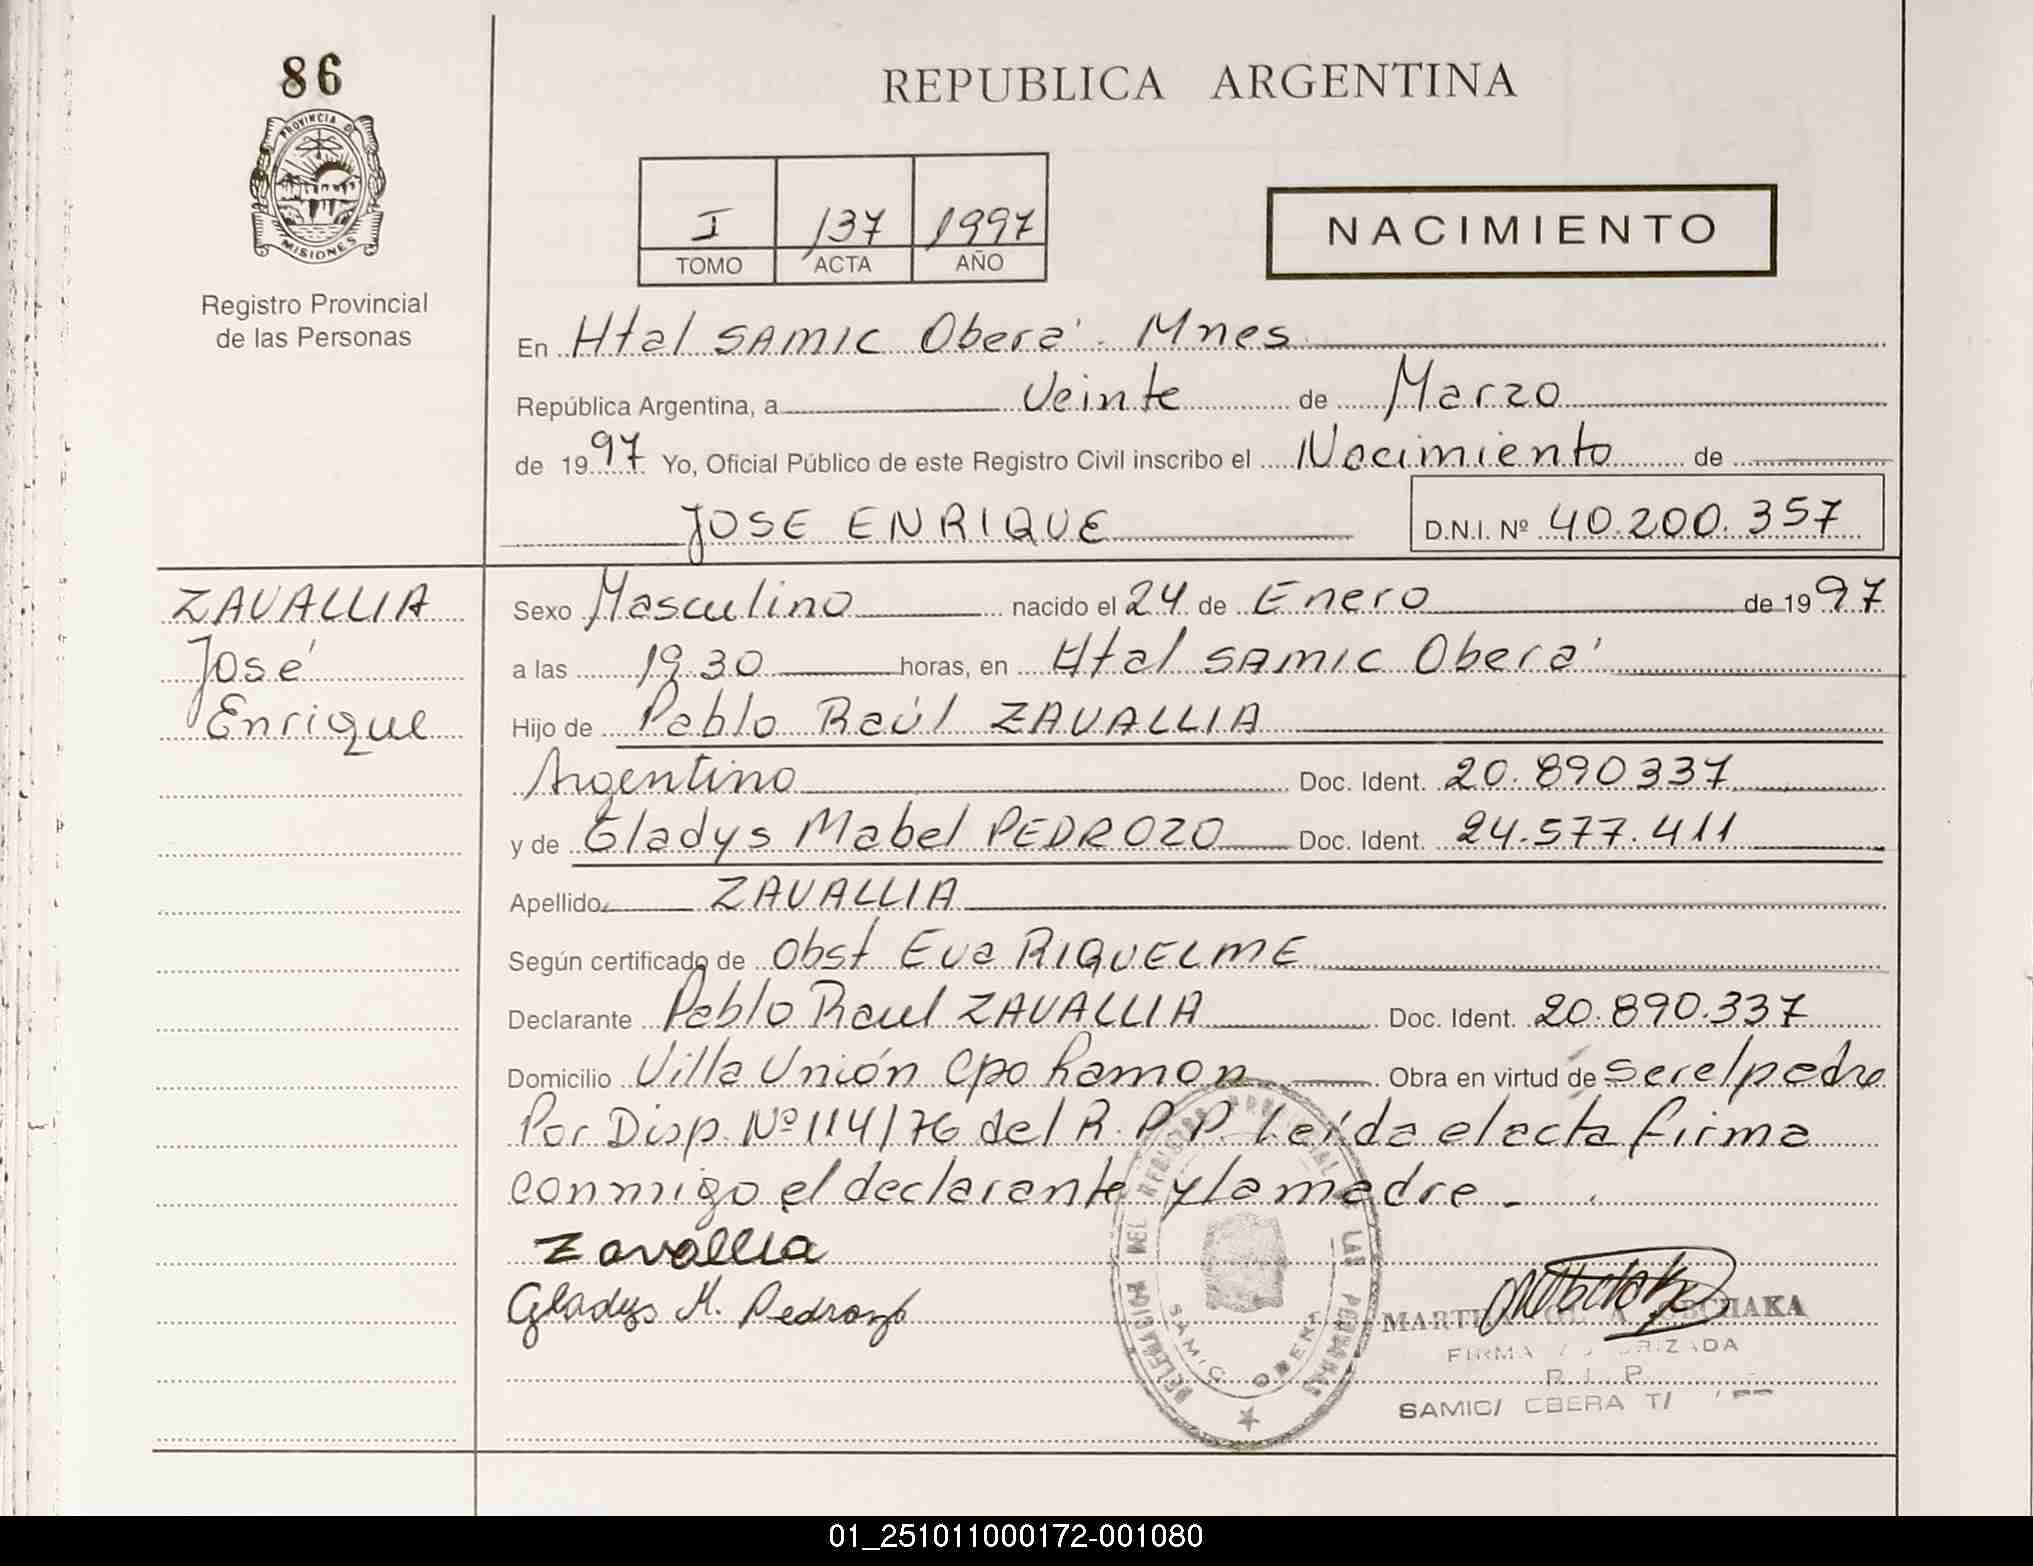 86
REPUBLICA ARGENTINA
PROVINCIA DE
MISIONES
Registro Provincial
de las Personas
I 137 1997
TOMO ACTA AÑO
NACIMIENTO
En Htal SAMIC Oberá - Mnes
República Argentina, a Veinte de Marzo
de 1997 Yo, Oficial Público de este Registro Civil inscribo el Nacimiento de
JOSE ENRIQUE D.N.I. Nº 40.200.357
ZAVALLIA
José
Enrique
Sexo Masculino nacido el 24 de Enero de 1997
a las 19.30 horas, en Htal SAMIC Oberá
Hijo de Pablo Raúl ZAVALLIA
Argentino Doc. Ident. 20.890337
y de Gladys Mabel PEDROZO Doc. Ident. 24.577.411
Apellido ZAVALLIA
Según certificado de Obst Eva RIQUELME
Declarante Pablo Raul ZAVALLIA Doc. Ident. 20.890.337
Domicilio Villa Unión Cpo Ramon Obra en virtud de ser el padre
Por Disp. Nº 114/76 del R.P.P. Leída el acta firma
conmigo el declarante y la madre -
Zavallia
Gladys M. Pedrozo
DELEGACION DEL REGISTRO PROVINCIAL DE LAS PERSONAS
SAMIC OBERA
FIRMA AUTORIZADA
SAMIC/ OBERA
01_251011000172-001080